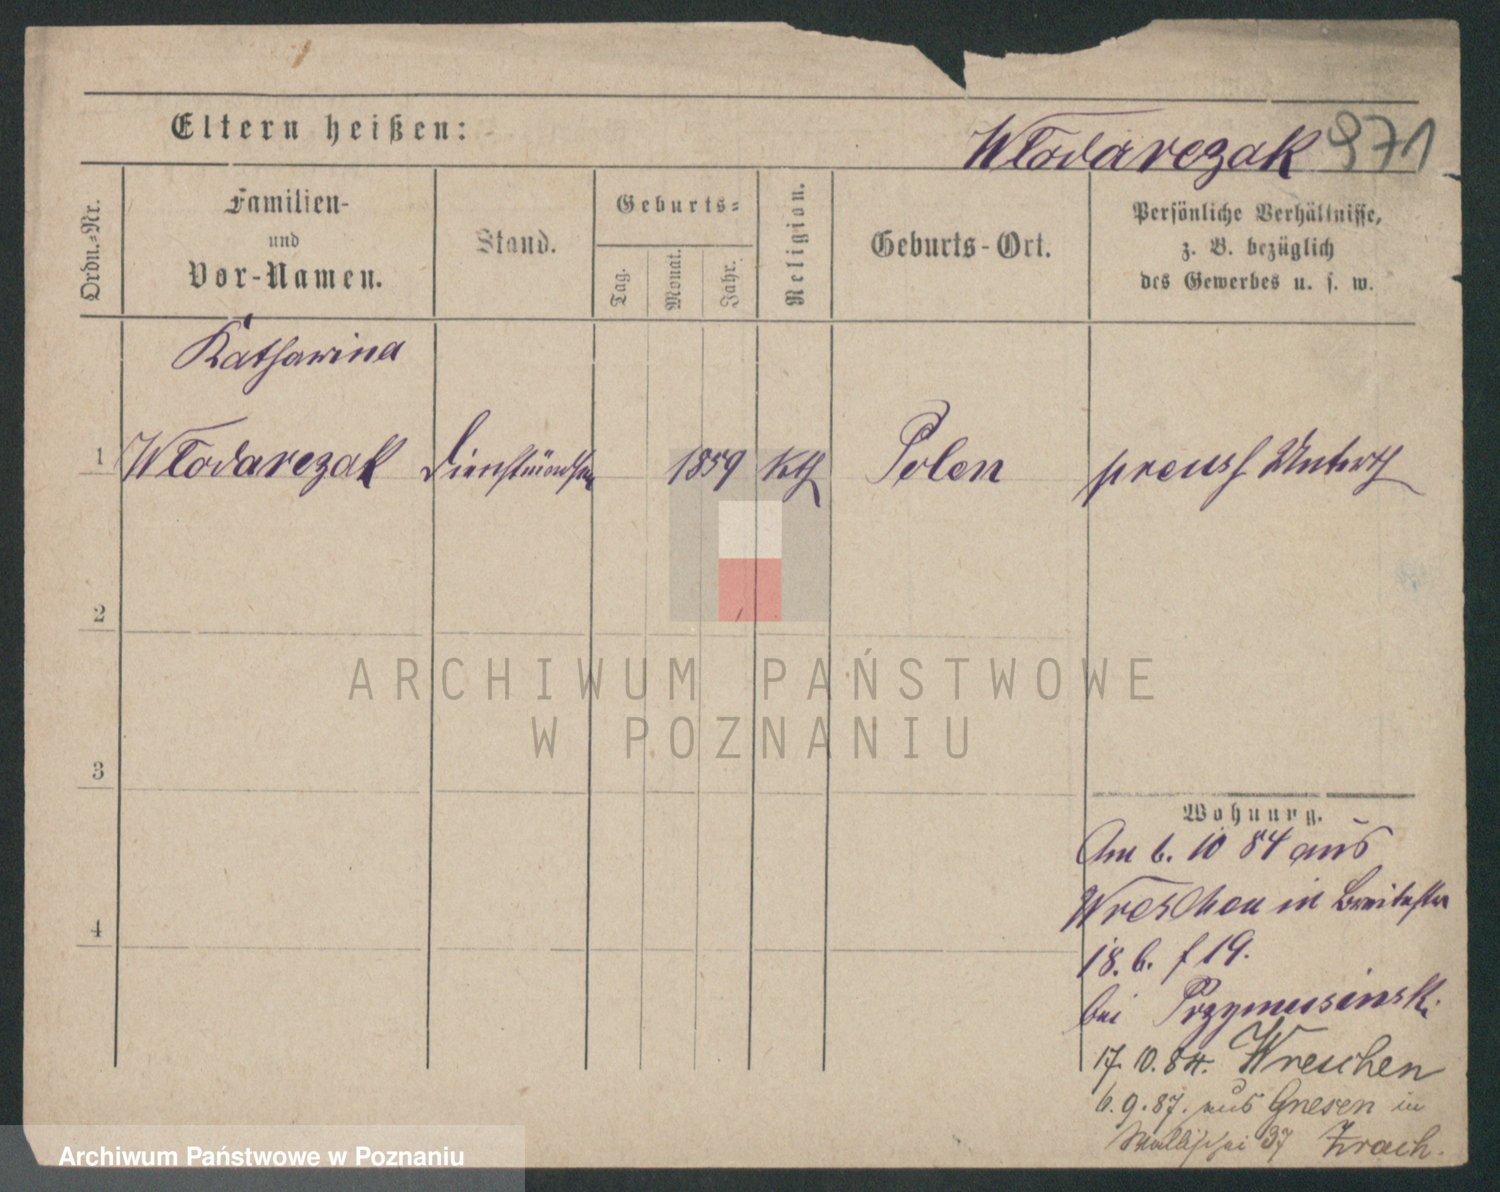 Eltern heißen:
Włodarczak 971
Ordn.=Nr.
Familien-
und
Vor-Namen.
Stand.
Geburts=
Tag.
Monat.
Jahr.
Religion.
Geburts-Ort.
Persönliche Verhältnisse,
z. B. bezüglich
des Gewerbes u. s. w.
Katharina
1 Włodarczak 1859 Kth Polen preuss Unterth
2
3
4
ARCHIWUM PAŃSTWOWE
W POZNANIU
Wohnung.
Am 6. 10 84 aus
Wreschen in Breitestr
18. b. 19.
bei Przymusinski
17. 10. 84. Wreschen
6. 9. 87. aus Gnesen in
Wallischei 37
Archiwum Państwowe w Poznaniu